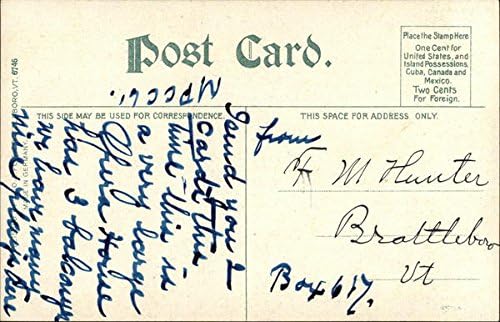 Post Card.
Place the Stamp Here
One Cent for
United States, and
Island Possessions,
Cuba, Canada and
Mexico.
Two Cents
For Foreign.
THIS SIDE MAY BE USED FOR CORRESPONDENCE.
THIS SPACE FOR ADDRESS ONLY.
BORO, VT. 6746
IN GERMANY
I send you 2
cards this
time this is
a very large
Opera House
has 3 balconys
we have many
nice plays here
from
F M Hunter
Brattleboro
Vt
Box 617.